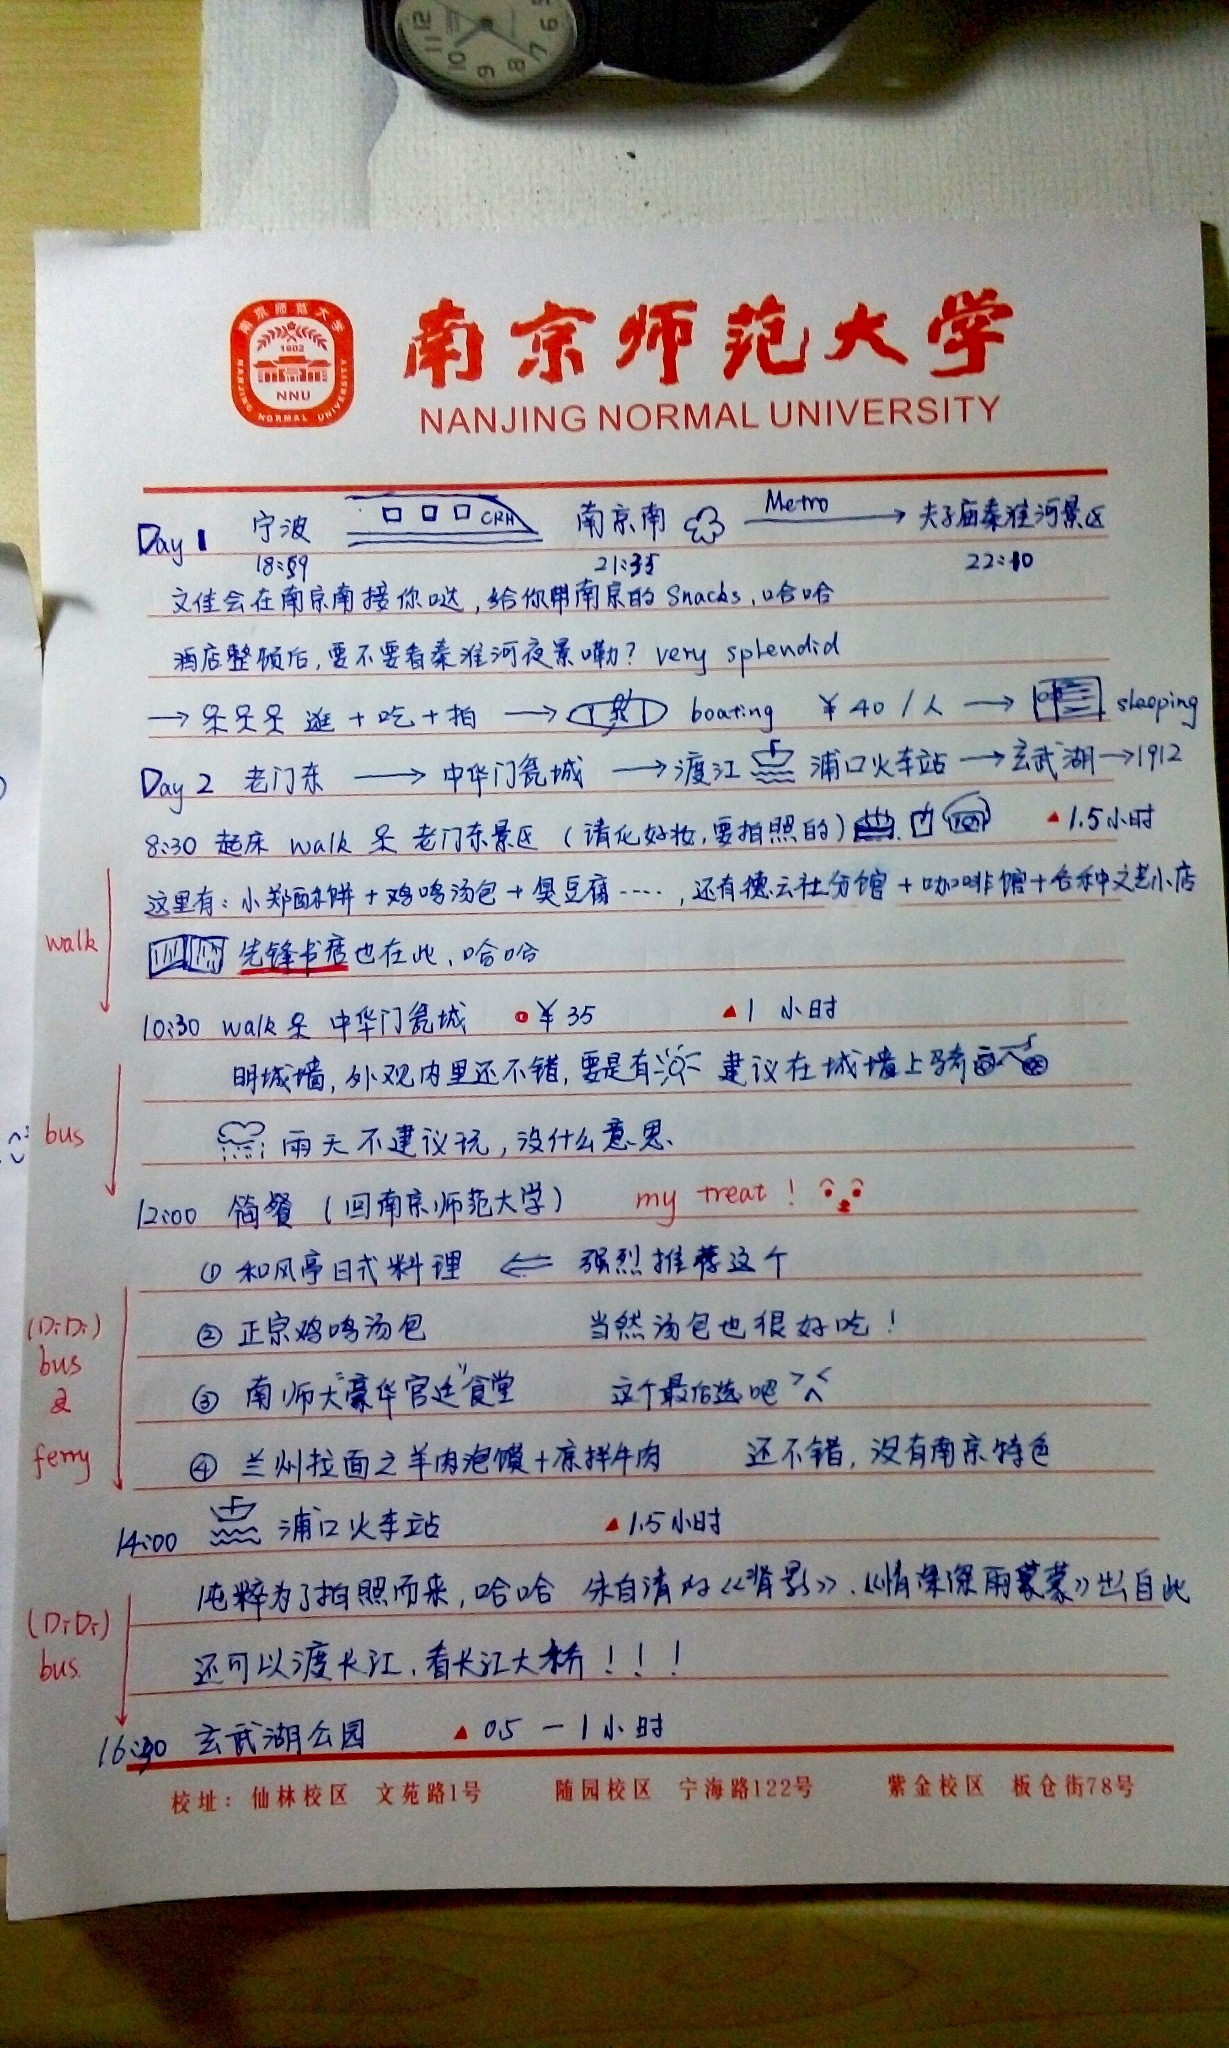 12 11 10 9 8 7 6 5
南京师范大学
1902
NNU
NANJING NORMAL UNIVERSITY
南京师范大学
NANJING NORMAL UNIVERSITY
Day 1 宁波 CRH 南京南 Metro 夫子庙秦淮河景区
18:59 21:35 22:10
文佳会在南京南接你哒,给你带南京的 Snacks,哈哈
酒店整顿后,要不要看秦淮河夜景嘞? very splendid
→ 逛+吃+拍 → boating ¥40/人 → sleeping
Day 2 老门东 → 中华门瓮城 → 渡江 浦口火车站 → 玄武湖 → 1912
8:30 起床 walk 老门东景区 (请化好妆,要拍照的) ▲1.5小时
这里有:小郑酥饼+鸡鸣汤包+臭豆腐····,还有德云社分馆+咖啡馆+各种文艺小店
walk
先锋书店也在此,哈哈
10:30 walk 中华门瓮城 ¥35 ▲1小时
明城墙,外观内里还不错,要是有 建议在城墙上骑
bus
雨天不建议玩,没什么意思.
12:00 简餐 (回南京师范大学) my treat!
① 和风亭日式料理 ⇐ 强烈推荐这个
(DiDi)
bus
ferry
② 正宗鸡鸣汤包 当然汤包也很好吃!
③ 南师大"豪华宫廷"食堂 这个最后选吧 >^<
④ 兰州拉面之羊肉泡馍+凉拌牛肉 还不错,没有南京特色
14:00 浦口火车站 ▲1.5小时
纯粹为了拍照而来,哈哈 朱自清的《背影》、《情深深雨蒙蒙》出自此
(DiDi)
bus.
还可以渡长江,看长江大桥!!!
16:30 玄武湖公园 ▲0.5-1小时
校址:仙林校区 文苑路1号 随园校区 宁海路122号 紫金校区 板仓街78号